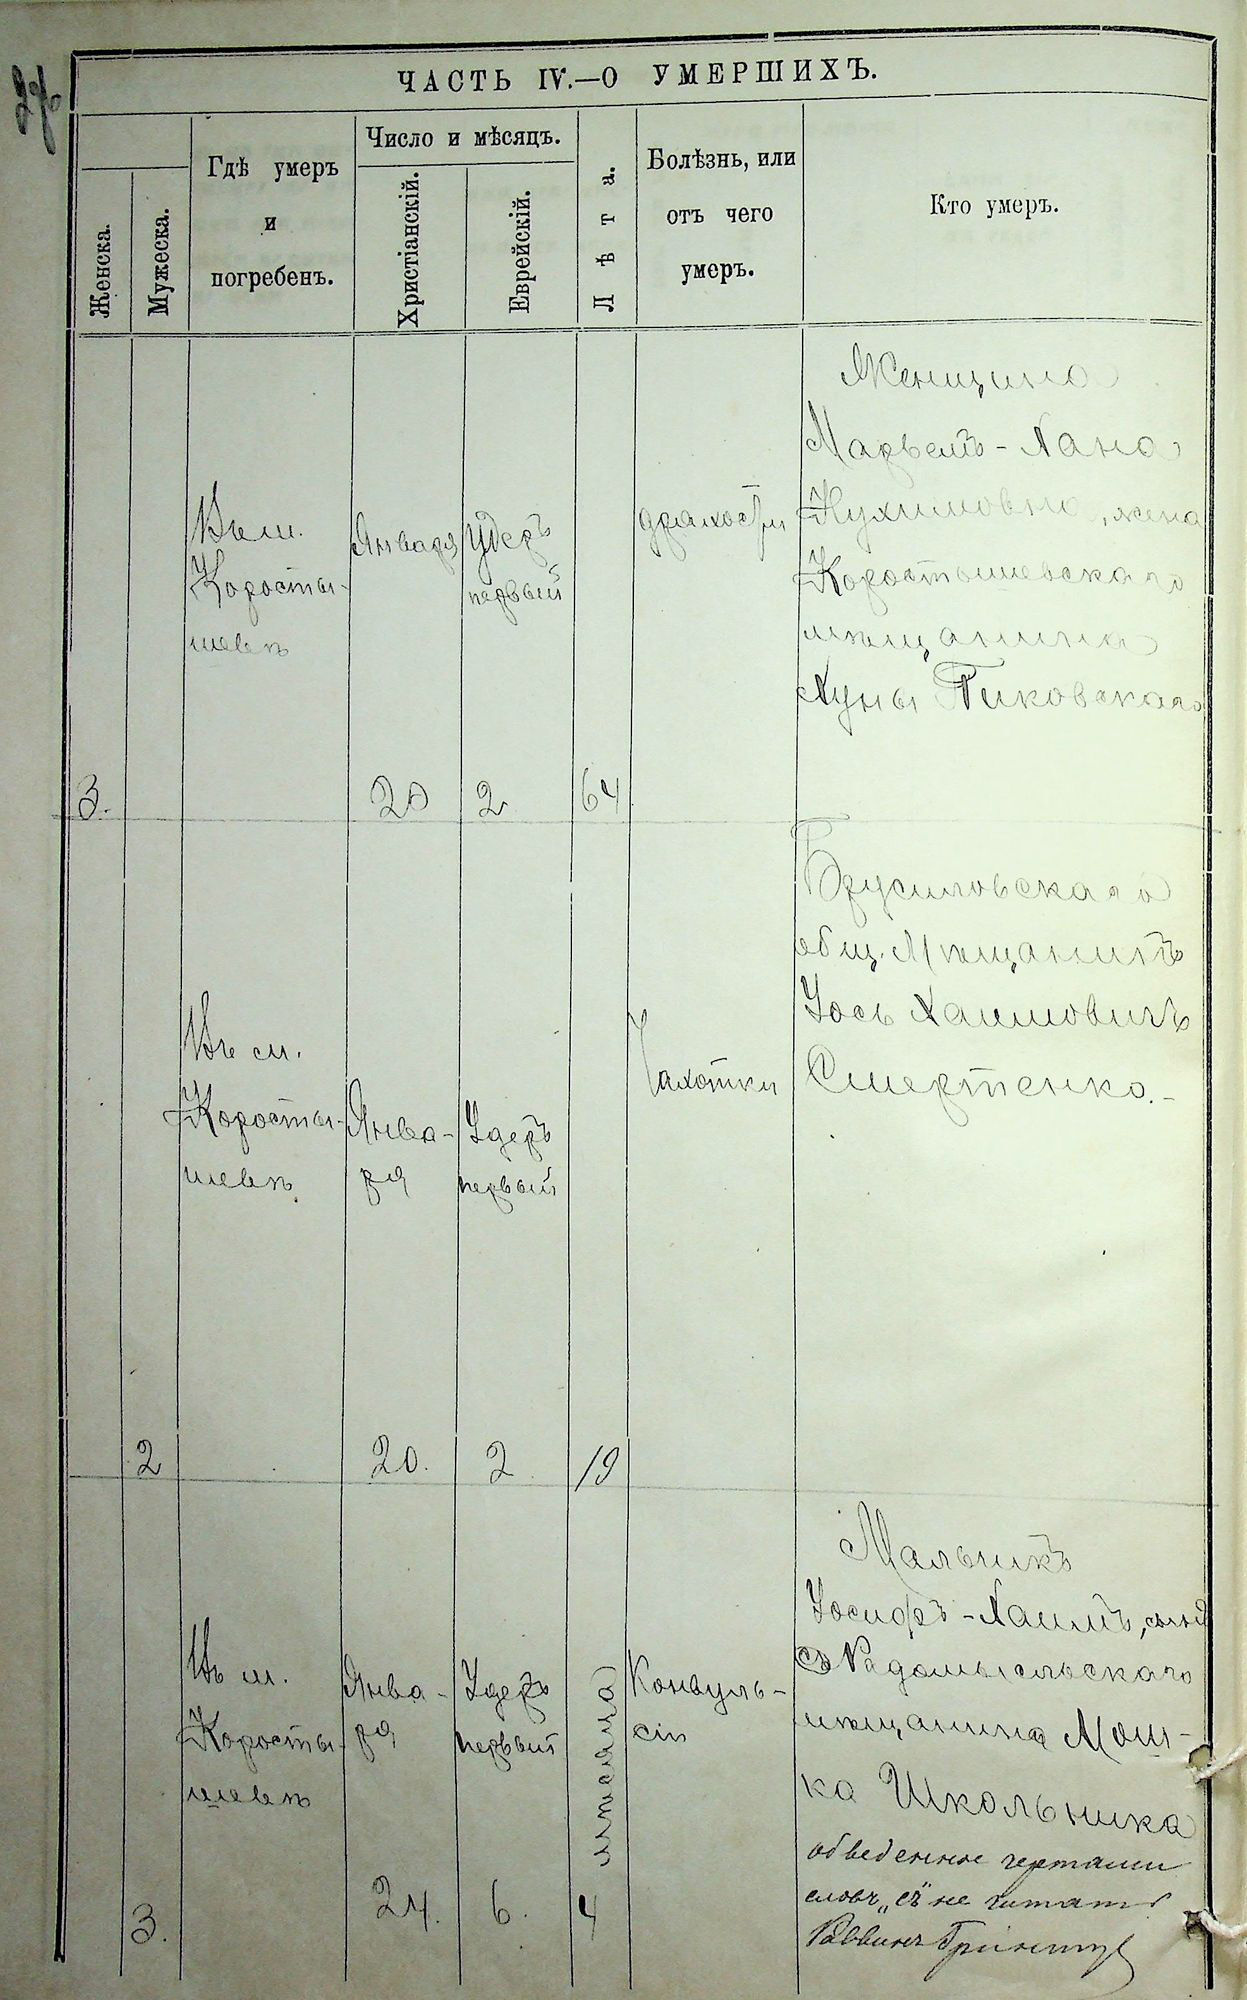 ЧАСТЬ IV.—О УМЕРШИХЪ.
Женска.
Мужеска.
Гдѣ умеръ
и
погребенъ.
Число и мѣсяцъ.
Христіанскій.
Еврейскій.
Лѣта.
Болѣзнь, или
отъ чего
умеръ.
Кто умеръ.
3.
Въ м.
Коросты-
шевѣ
Января
20
Удеръ
первый
2
64
дряхлости
Женщина
Марьемъ-Хана
Нухимовна, жена
Коростышевскаго
мѣщанина
Хуны Пиковскаго
2
Въ м.
Коросты-
шевѣ
Янва-
ря
20.
Удеръ
первый
2
19
Чахотки
Брусиловскаго
общ. Мѣщанинъ
Іось Хаимовичъ
Смертенко.-
3.
Въ м.
Коросты-
шевѣ
Янва-
ря
24.
Удеръ
первый
6.
4
мѣсяца
Конвуль-
сіи
Мальчикъ
Іосифъ-Хаимъ, сынъ
съ Радомысльскаго
мѣщанина Мош-
ка Школьника
обведенное чертами
слово „съ" не читать
Раввинъ